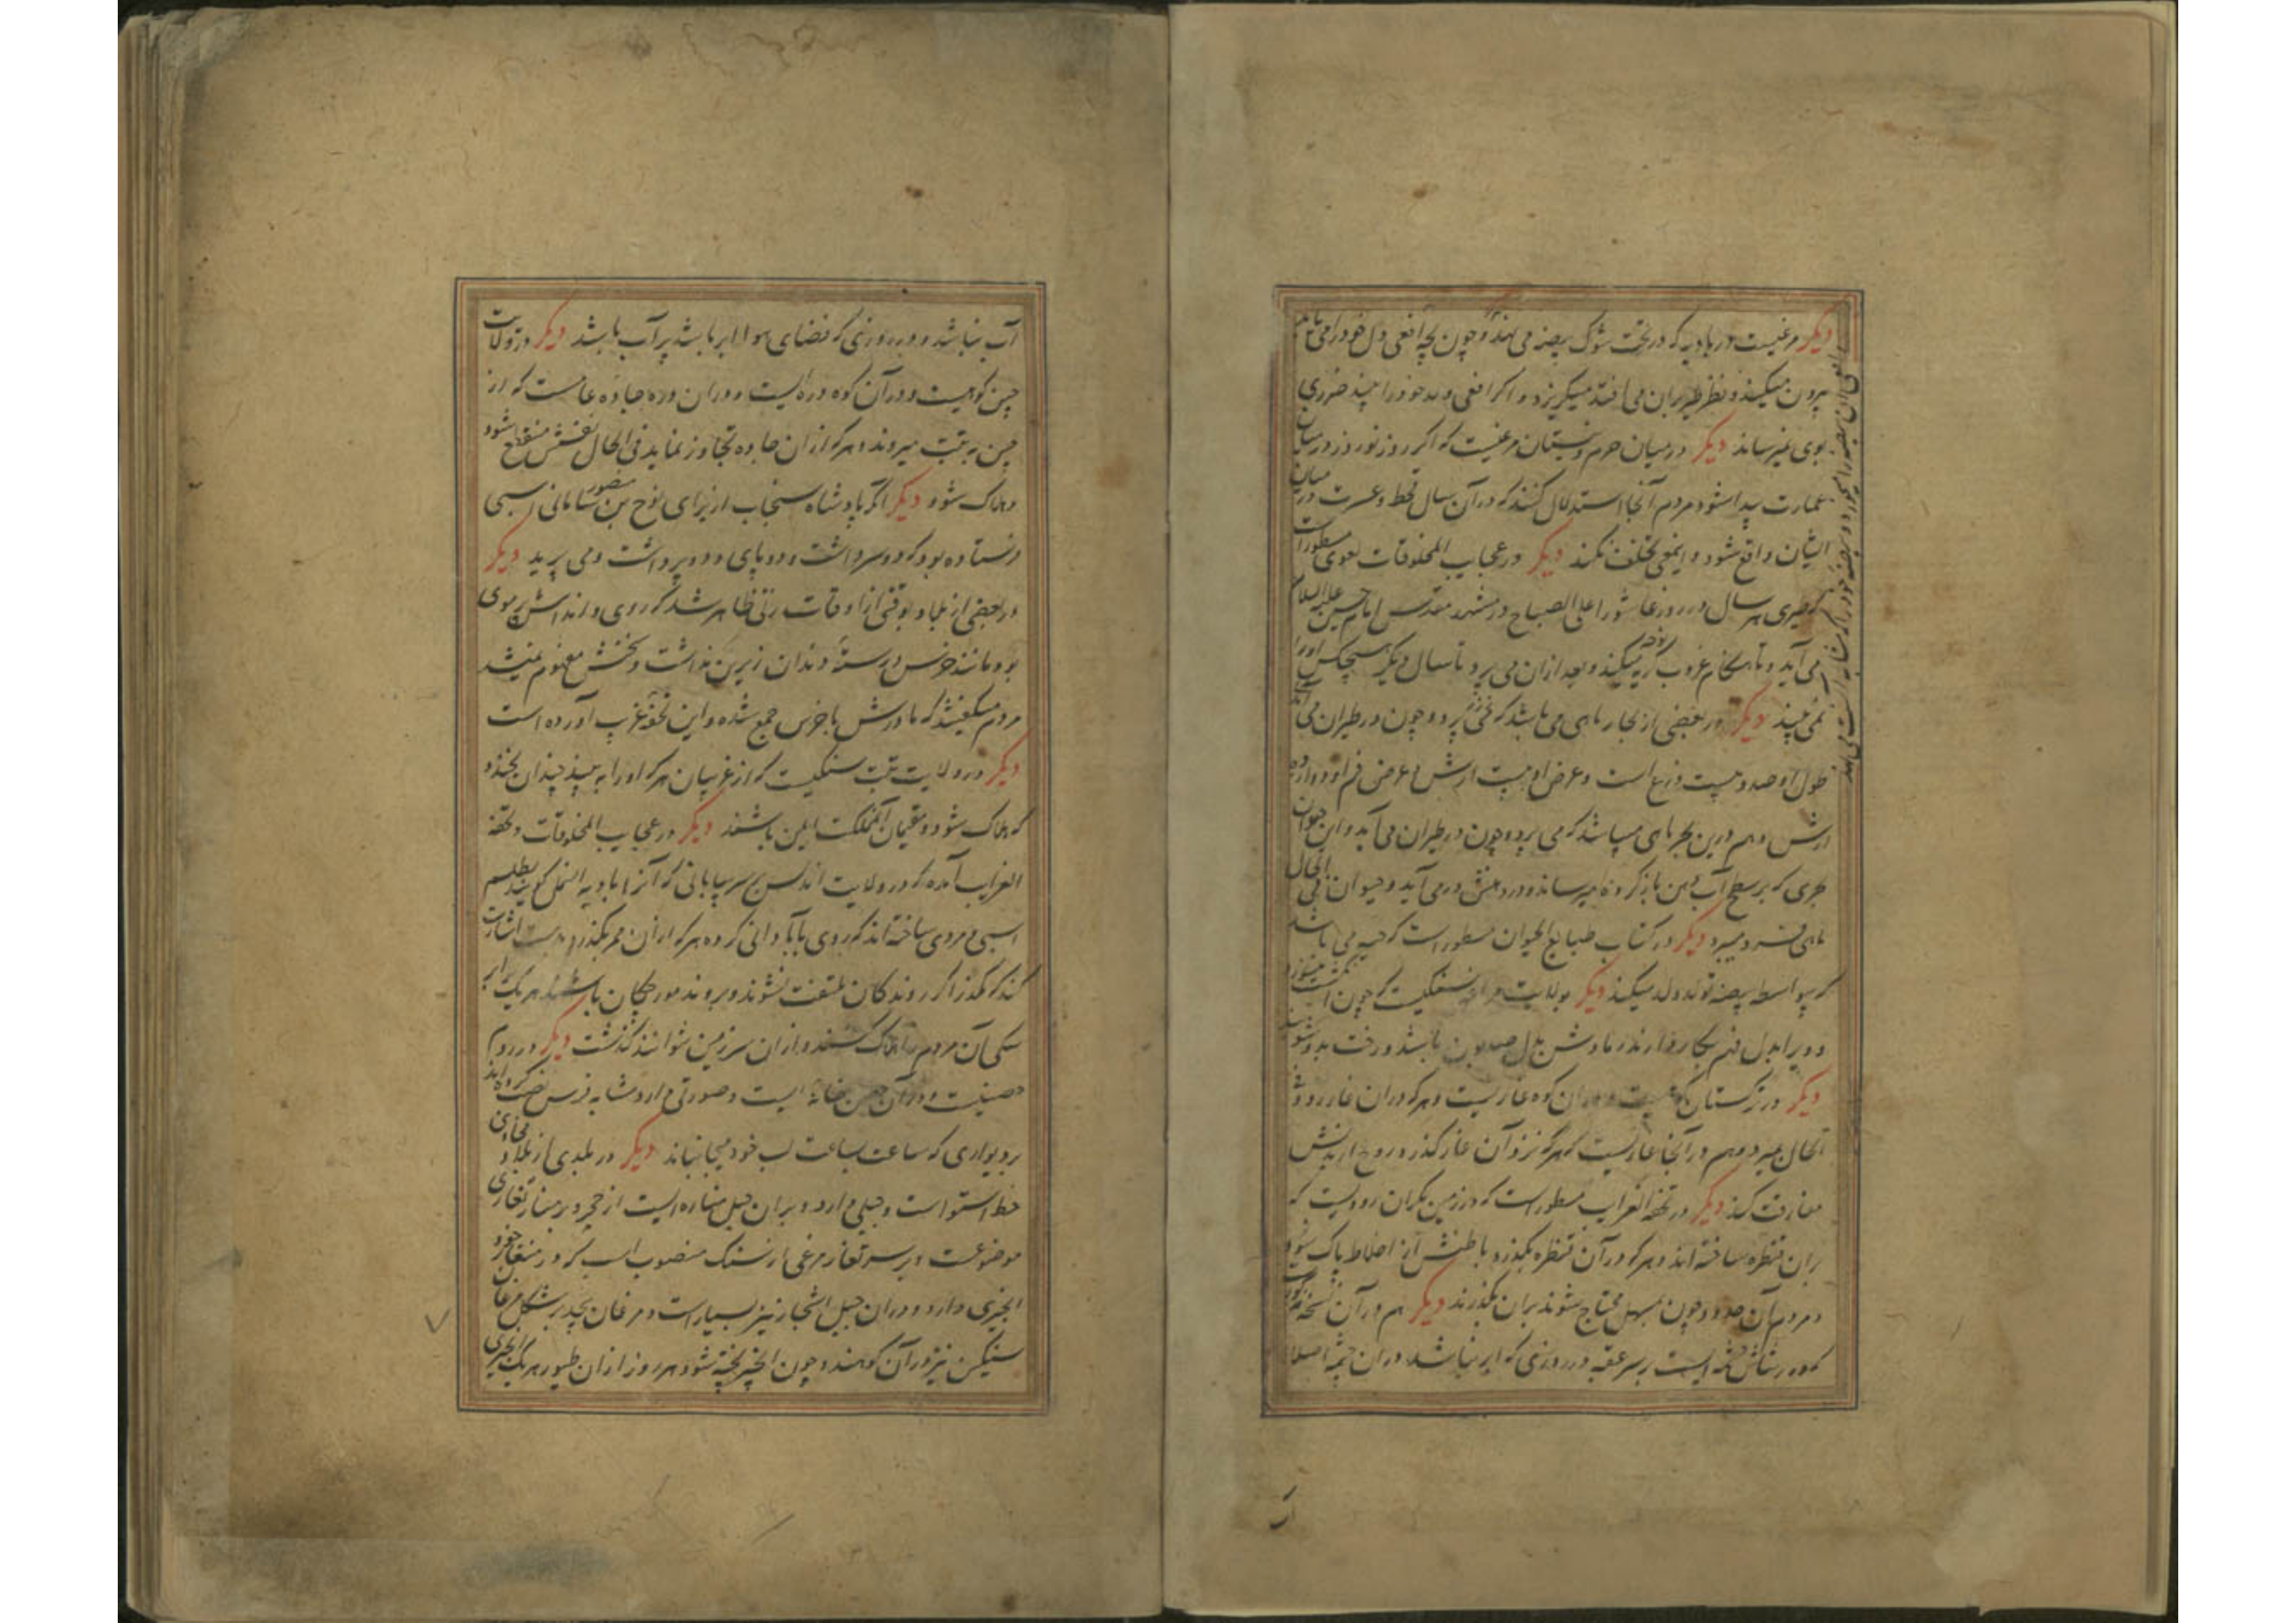 دیکر مرغیست در بادیه که در تحت شوک بیضه می نهد و چون بچه افعی
بیرون میکند و نظر طیر بران می افتد میکریزد و اکر افعی ولد خود را بیند ضرری
بوی نمیرساند دیکر در میان حرم و سیستان مرغیست که اکر روز نوروز در میان
عمارت پیدا شود مردم آنجا استدلال کنند که در آن سال قحط و عسرت در میان
ایشان واقع شود و اینمعنی تخلف نکند دیکر در عجایب المخلوقات طوسی مسطورات
که طیری هر سال در روز عاشورا علی الصباح در مشهد مقدس امام حسین علیه السلام
می آید و تا هنکام غروب نوحه کریه میکند و بعد ازان می پرد تا سال دیکر هیچکس اورا
نمی بیند دیکر در بعضی از بحار ماهی می باشد که می پرد و چون در طیران می
طول او صد و بیست ذرع است و عرض او بیست ارش و عرض فم او دوازده
ارش و هم درین بحر ماهی میباشد که می پرد و چون در طیران می آید و این حیوان
بحری که بر سطح آب دهن باز کرده میرساند و در دهنش در می آید و حیوان فی الحال
ماهی میمیرد دیکر در کتاب طبایع الحیوان مسطور است که حیه می باشد
که بیواسطه بیضه تولد ولد میکند دیکر بولایت مراغه سنکیست که چون
و ویرا بدل فحم بکار دارند رمادش بدل صابون باشد و رخت بدو شویند
دیکر در ترکستان کوهیست و دران کوه غاریست و هر که دران غار رود فی
الحال میرد و هم در آنجا غاریست که هر که نزد آن غار کذرد روح از بدنش
مفارقت کند دیکر در تحفة الغرایب مسطور است که در زمین مکران رودیست که
بران قنطره ساخته اند و هر که در آن قنطره بکذرد باطنش از اخلاط پاک شود
و مردم آن حدود چون بمسهل محتاج شوند بران بکذرند دیکر هم در آن نسخه مذکور
که در شاش چشمه ایست بر سر عقبه در روزی که ابر نباشد دران چشمه اصلا
آب
آب نباشد و در روزی که فضای هوا ابر باشد پر آب باشد دیکر در ولایت
چین کوهیست و در آن کوه دره ایست و دران دره جاده عامست که از
چین به تبت میروند و هر که ازان جاده تجاوز نماید فی الحال نفسش منقطع شود
و هلاک شود دیکر اکر پادشاه سنجاب از برای نوح بن منصور سامانی اسبی
فرستاده بود که دو سر داشت و دو پای و دو پر داشت و می پرید دیکر
در بعضی از بلاد بوقتی از اوقات زنی ظاهر شد که روی و اندامش پر موی
بود مانند خرس و رستهٔ دندان زیرین نداشت و سخنش مفهوم نمیشد
مردم میکفتند که مادرش با خرس جمع شده و این تحفه غریب آورده است
دیکر در ولایت تبت سنکیست که از غریبان هر که اورا به بیند چندان بخندد
که هلاک شود و مقیمان آن مملکت ایمن باشند دیکر در عجایب المخلوقات و تحفة
الغرایب آمده که در ولایت اندلس بر سر بیابانی که آنرا بادیه النمل کویند بطلسم
اسبی و مردی ساخته اند که روی بآبادانی کرده هر که ازان ممر بکذرد بدست اشارت
کند که مکذر اکر روندکان ملتفت نشوند و بروند مورچکان باشند هر یک برابر
سکی آن مردم را هلاک کنند و ازان سرزمین نتوانند کذشت دیکر در روم
حصنیست و در آن حصن خانهٔ ایست و صورتی دارد مشابه فرس نصب کرده اند
بر دیواری که ساعت بساعت لب خود میجنباند دیکر در بلدی از بلاد محاذی
خط استوا است و جبلی دارد و بران جبل مناره ایست از حجر و بر مناره تغاری
موضوعست و بر سر تغار مرغی از سنک منصوب است که در منقار خود
انجیری دارد و دران جبل اشجار نیز بسیار است و مرغان بیحد بر شکل مرغان
سنکین نیز در آن کوهند و چون انجیر پخته شود هر روز ازان طیور هر یک انجیری